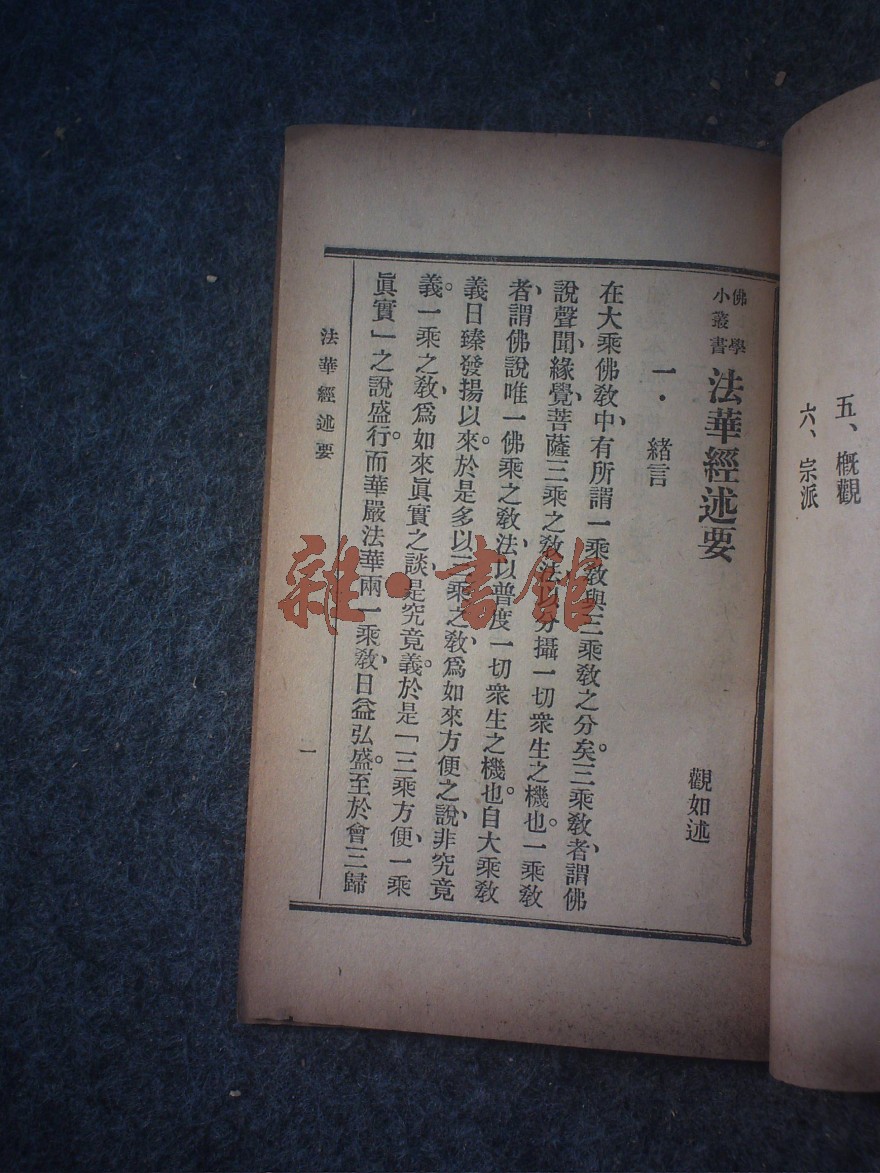 五、概觀
六、宗派
佛學
小叢書
法華經述要
觀如述
一．緒言
在大乘佛敎中、有所謂一乘敎與三乘敎之分矣。三乘敎者、謂佛
說聲聞、緣覺、菩薩三乘之敎法、以分攝一切衆生之機也。一乘敎
者、謂佛說唯一佛乘之敎法、以普度一切衆生之機也。自大乘敎
義日臻發揚以來。於是多以三乘之敎、爲如來方便之說、非究竟
義。一乘之敎、爲如來眞實之談、是究竟義。於是「三乘方便、一乘
眞實」之說盛行。而華嚴法華兩一乘敎、日益弘盛。至於會三歸
法華經述要
一
雜·書館